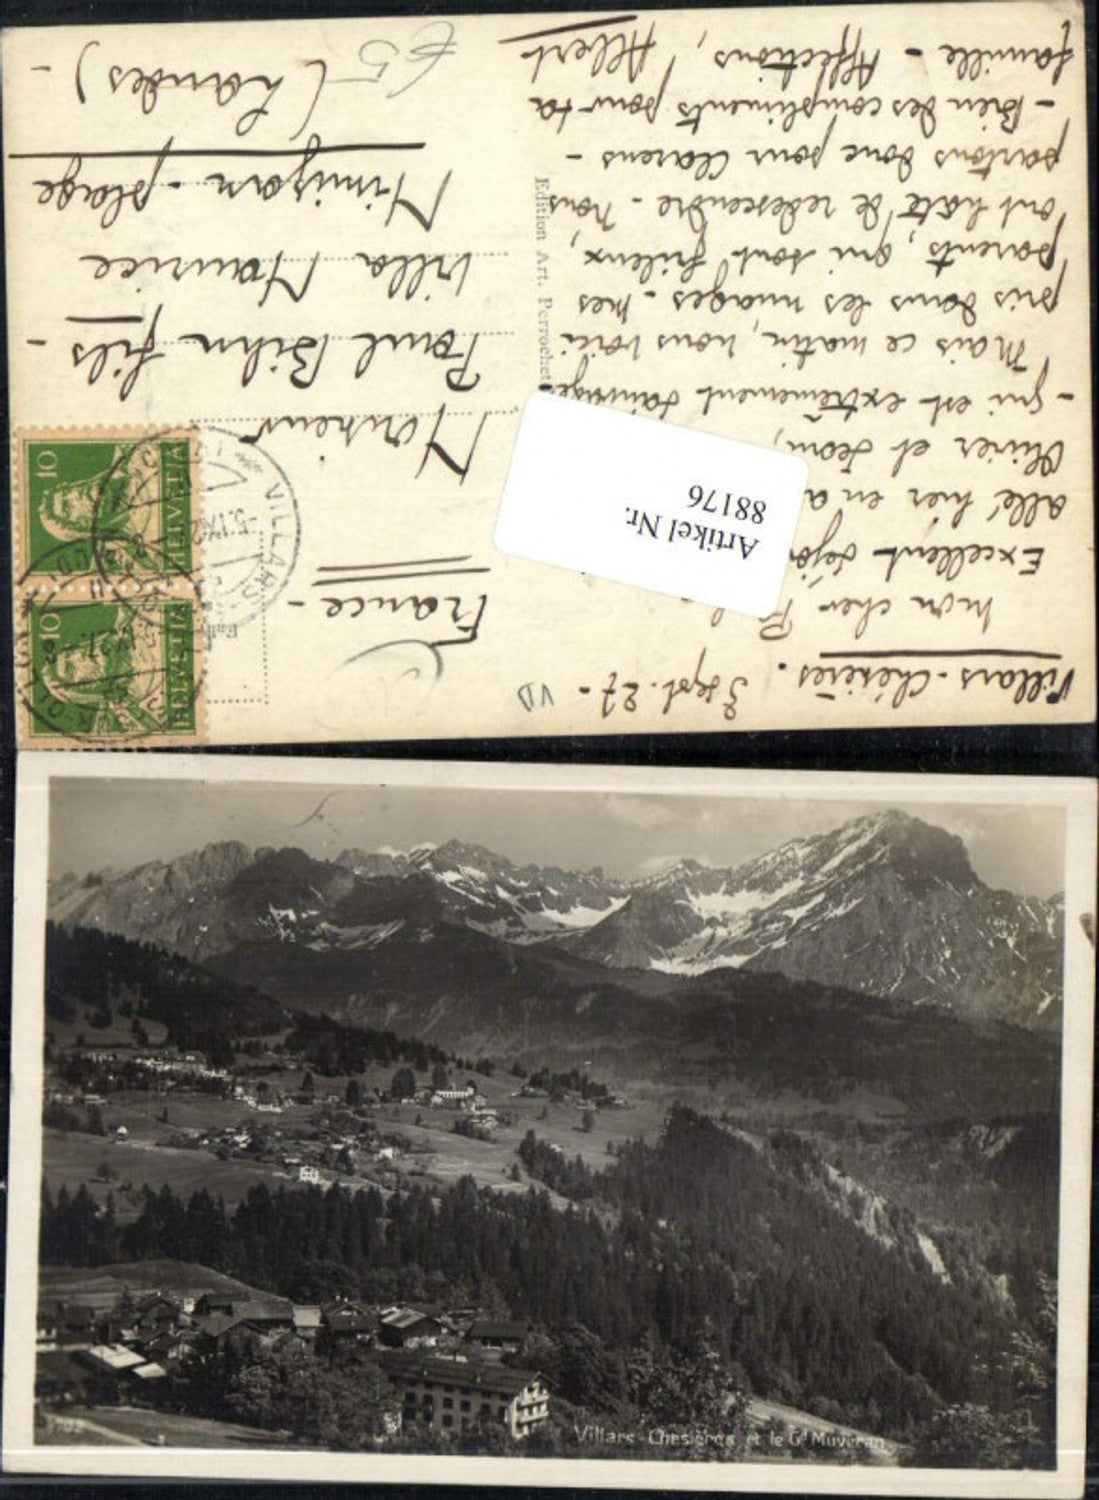 Villars-Chésières.
3 Sept. 27 -
Mon cher
Excellent
allé hier en
Olivier et Jean,
- qui est extrêmement
Mais ce matin, nous voici
pris dans les nuages - mes
parents, qui sont frileux,
ont hâte de redescendre - nous
partons donc pour Clarens -
- Bien des compliments pour ta
famille - Affections, Albert
Edition Art. Perrochet
VD
Monsieur
Paul Bihn fils -
Villa Maurice
Mimizan-plage
(Landes) -
France -
€5
10
HELVETIA
10
HELVETIA
VILLARS
Artikel Nr.
88176
Villars-Chesières et le Gd Muveran